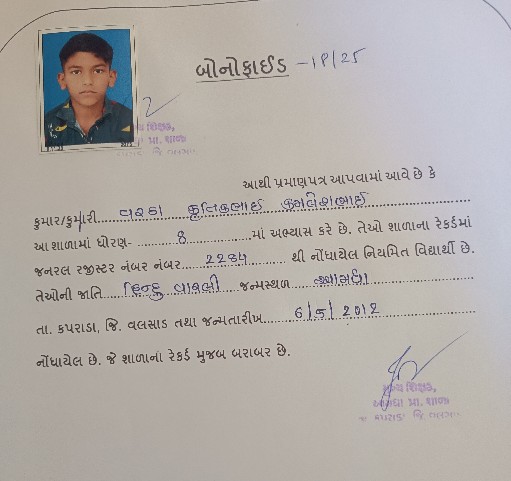 બોનોફાઈડ - 19/25
આથી પ્રમાણપત્ર આપવામાં આવે છે કે
કુમાર/કુમારી. વરઠા કૃતિકભાઈ કમલેશભાઈ
આ શાળામાં ધોરણ- 8 માં અભ્યાસ કરે છે. તેઓ શાળાના રેકર્ડમાં
જનરલ રજીસ્ટર નંબર નંબર 2284 થી નોંધાયેલ નિયમિત વિદ્યાર્થી છે.
તેઓની જાતિ હિન્દુ વારલી જન્મસ્થળ
તા. કપરાડા, જિ. વલસાડ તથા જન્મતારીખ 6/5/2012
નોંધાયેલ છે. જે શાળાના રેકર્ડ મુજબ બરાબર છે.
મુખ્ય શિક્ષક,
પ્રા. શાળા